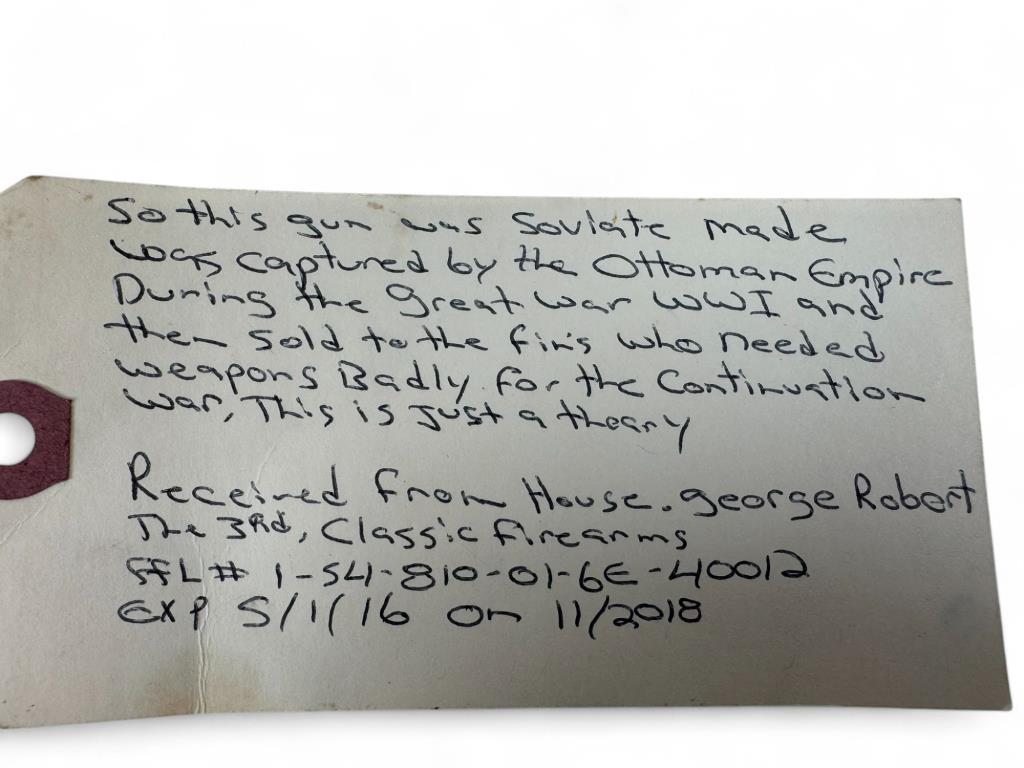 So this gun was Soviate made
was captured by the Ottoman Empire
During the great war WWI and
then sold to the fin's who needed
weapons Badly for the Continuation
war, This is just a theary
Received from House. george Robert
The 3rd, Classic firearms
FFL# 1-54-810-01-6E-40012
EXP 5/1/16 on 11/2018